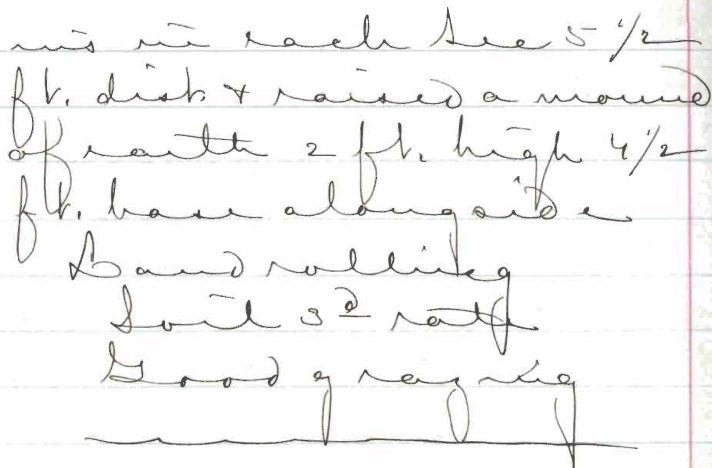 ins in each Sec 5 1/2
ft. dist. & raised a mound
of earth 2 ft. high 4 1/2
ft. base alongside
Land rolling
Soil 3d rate
Good grazing